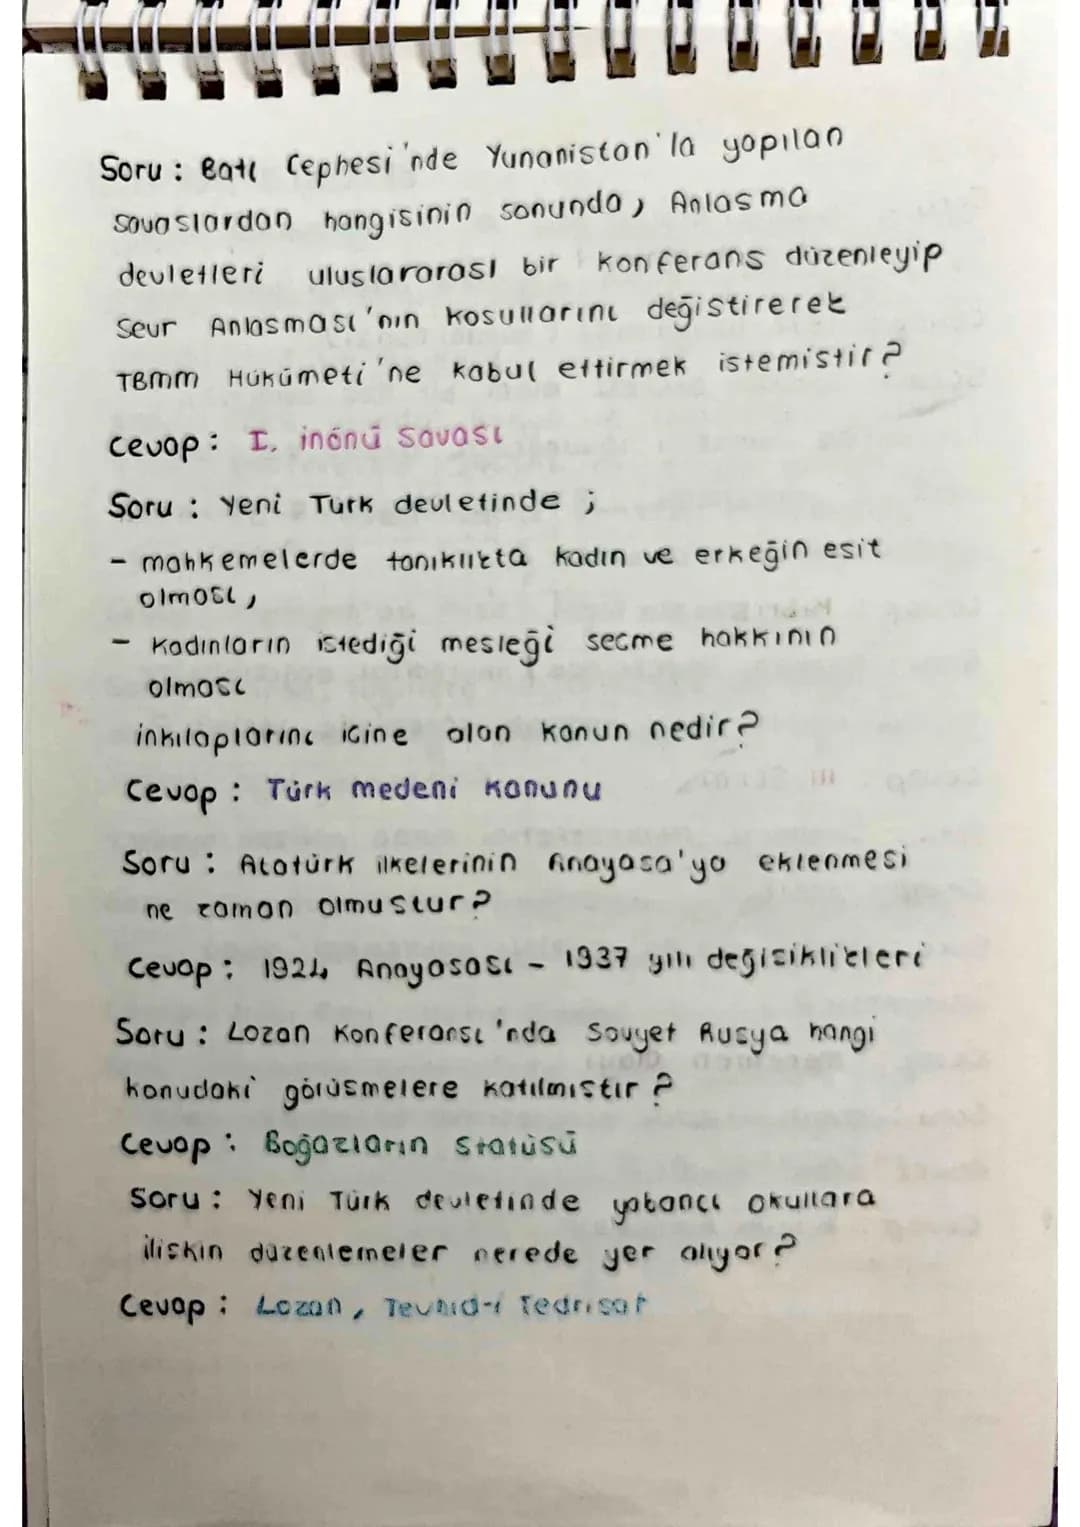 Soru : Batı Cephesi'nde Yunanistan'la yapılan
savaslardan hangisinin sonunda, Anlasma
devletleri uluslararası bir konferans düzenleyip
Sevr Anlasması'nın kosullarını değistirerek
TBMM Hükümeti'ne kabul ettirmek istemistir?
Cevap : I. inönü Savası
Soru : Yeni Türk devletinde ;
- mahkemelerde tanıklıkta kadın ve erkeğin esit
olması,
- Kadınların istediği mesleği secme hakkının
olması
inkılaplarını icine alan kanun nedir?
Cevap : Türk medeni kanunu
Soru : Atatürk ilkelerinin Anayasa'ya eklenmesi
ne zaman olmustur?
Cevap : 1924 Anayasası - 1937 yılı değisiklikleri
Soru : Lozan Konferansı'nda Sovyet Rusya hangi
konudaki görüsmelere katılmıstır?
Cevap : Boğazların Statüsü
Soru : Yeni Türk devletinde yabancı okullara
iliskin düzenlemeler nerede yer alıyor?
Cevap : Lozan, Tevhid-i Tedrisat